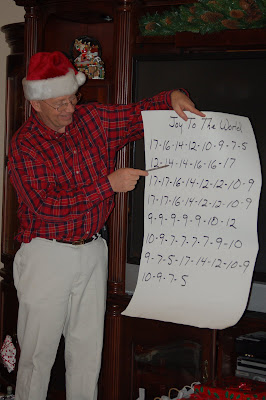 Joy To The World
17-16-14-12-10-9-7-5
12-14-14-16-16-17
17-17-16-14-12-12-10-9
17-17-16-14-12-12-10-9
9-9-9-9-9-10-12
10-9-7-7-7-7-9-10
9-7-5-17-14-12-10-9
10-9-7-5